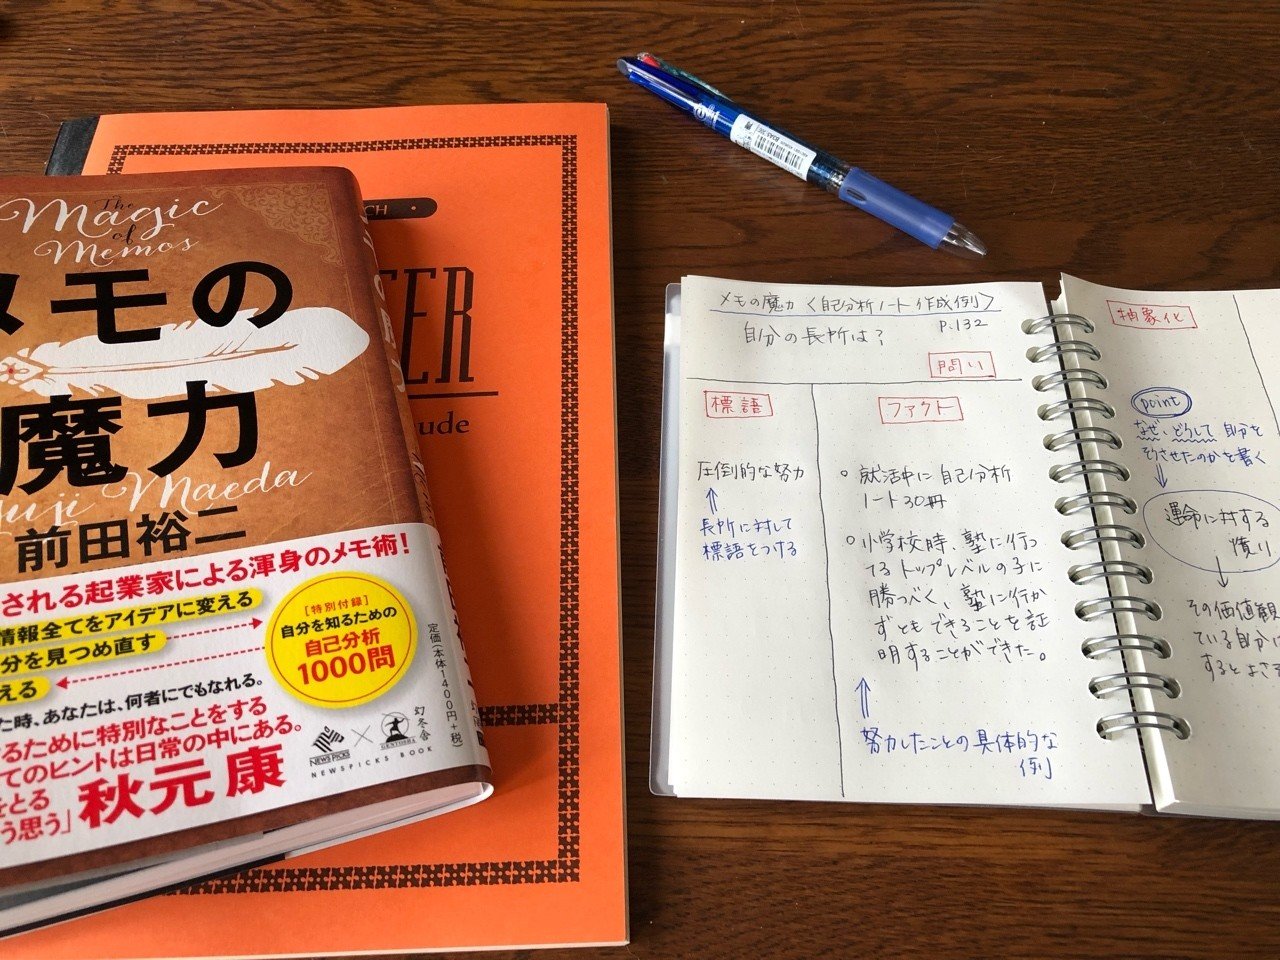 The
Magic
of
Memos
メモの
魔力
Yuji Maeda
前田裕二
される起業家による渾身のメモ術!
情報全てをアイデアに変える
分を見つめ直す
える
た時、あなたは、何者にでもなれる。
るために特別なことをする
てのヒントは日常の中にある。
をとる
う思う」
秋元 康
[特別付録]
自分を知るための
自己分析
1000問
定価(本体1400円+税)
NEWS PICKS
GENTOSHA
幻冬舎
NEWSPICKS BOOK
CH
ER
ude
メモの魔力〈自己分析ノート作成例〉
P.132
自分の長所は?
問い
標語
圧倒的な努力
長所に対して
標語をつける
ファクト
○ 就活中に自己分析
ノート30冊
○ 小学校時、塾に行っ
てるトップレベルの子に
勝つべく、塾に行か
ずともできることを証
明することができた。
努力したことの具体的な
例
抽象化
point
なぜ、どうして自分を
そうさせたのかを書く
運命に対する
憤り
その価値観
ている自分に
するとよさ